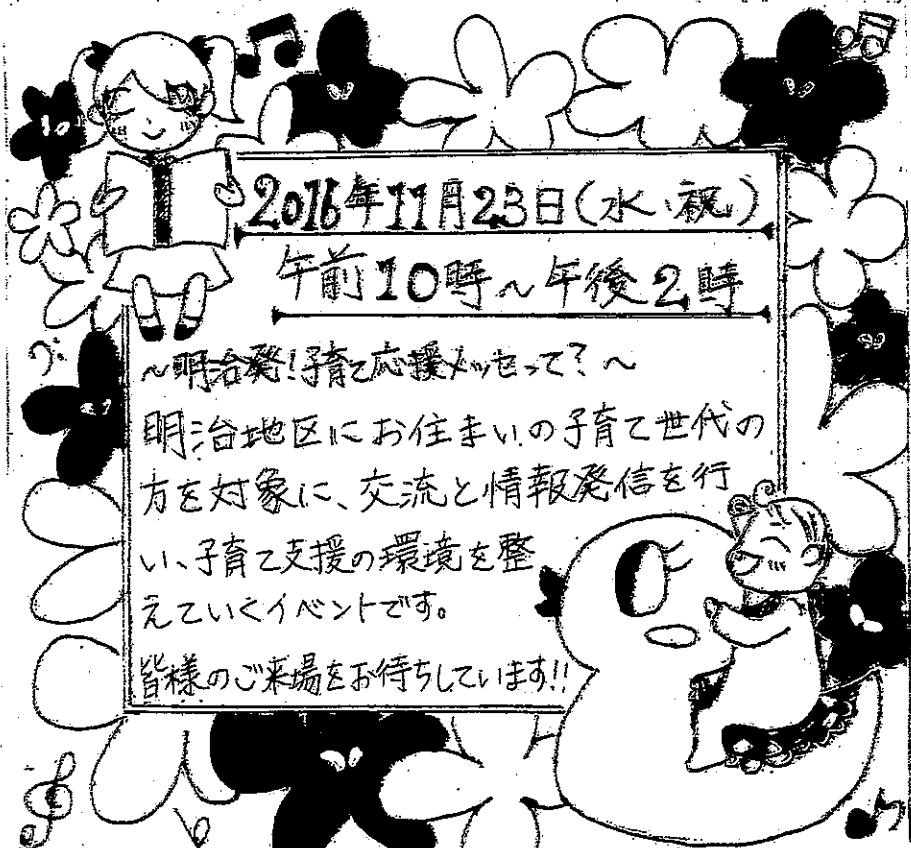 2016年11月23日(水、祝)
午前10時~午後2時
~明治発!子育て応援メッセって?~
明治地区にお住まいの子育て世代の
方を対象に、交流と情報発信を行
い、子育て支援の環境を整
えていくイベントです。
皆様のご来場をお待ちしています!!